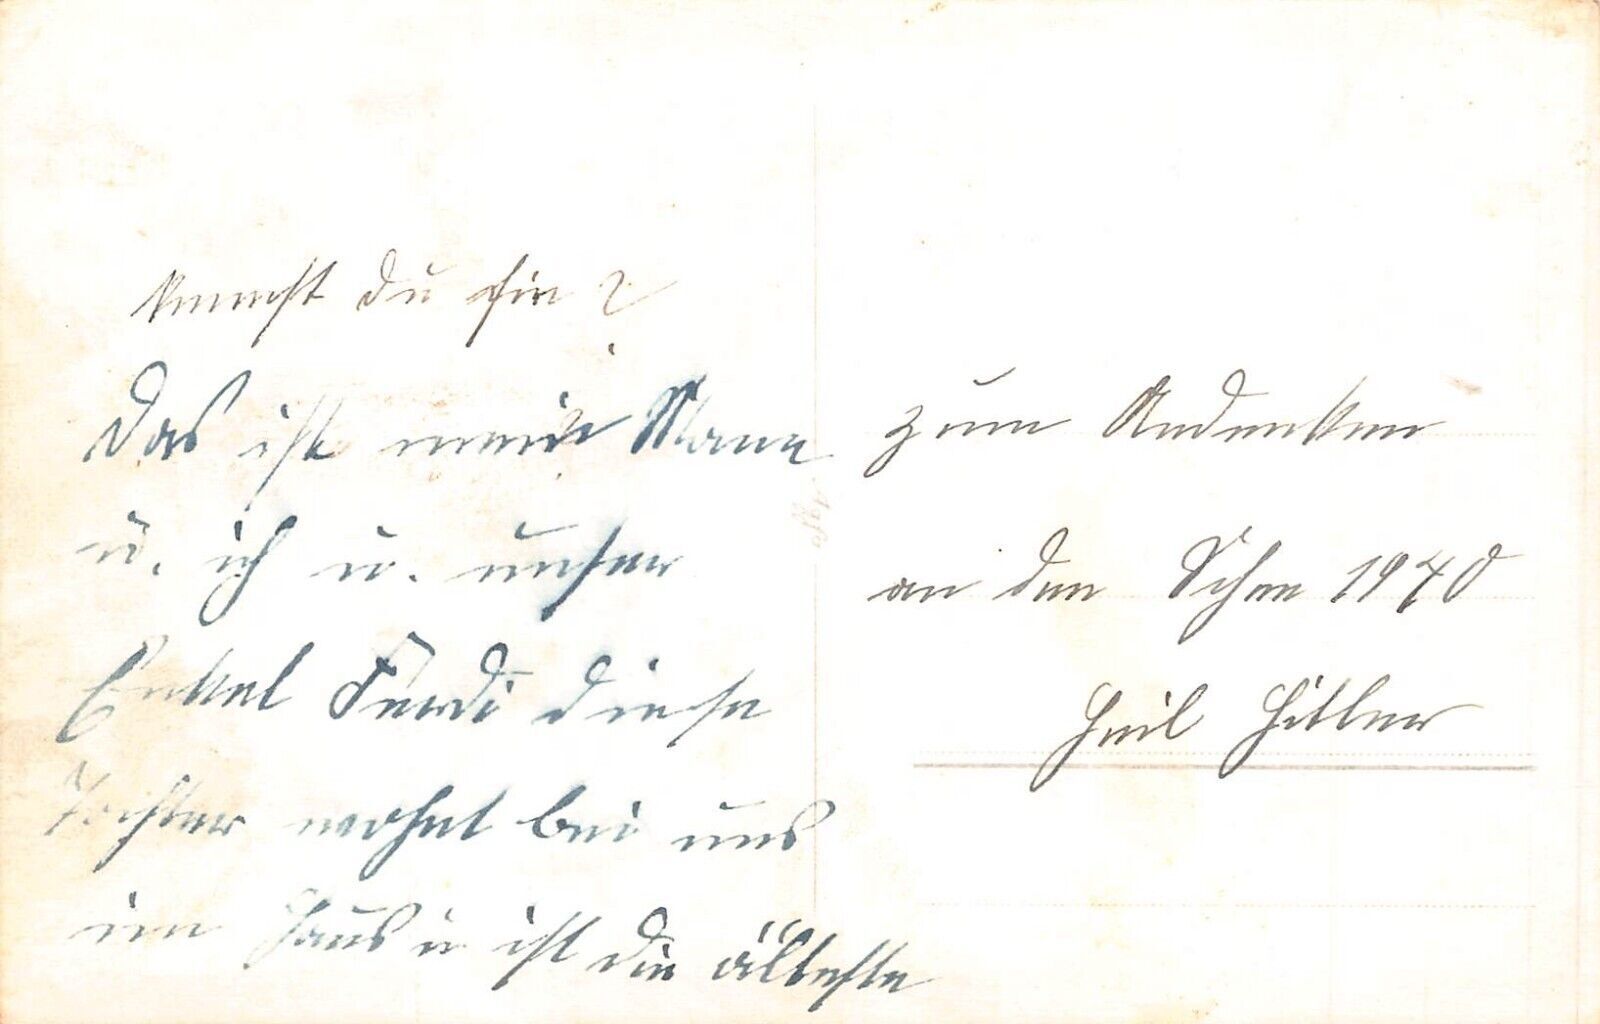 kennst du sie ?
Das ist mein Mann
u. ich u. unser
Enkel Ferdi diese
Tochter wohnt bei uns
im Haus u ist die älteste
zum Andenken
an den 1940
Heil Hitler